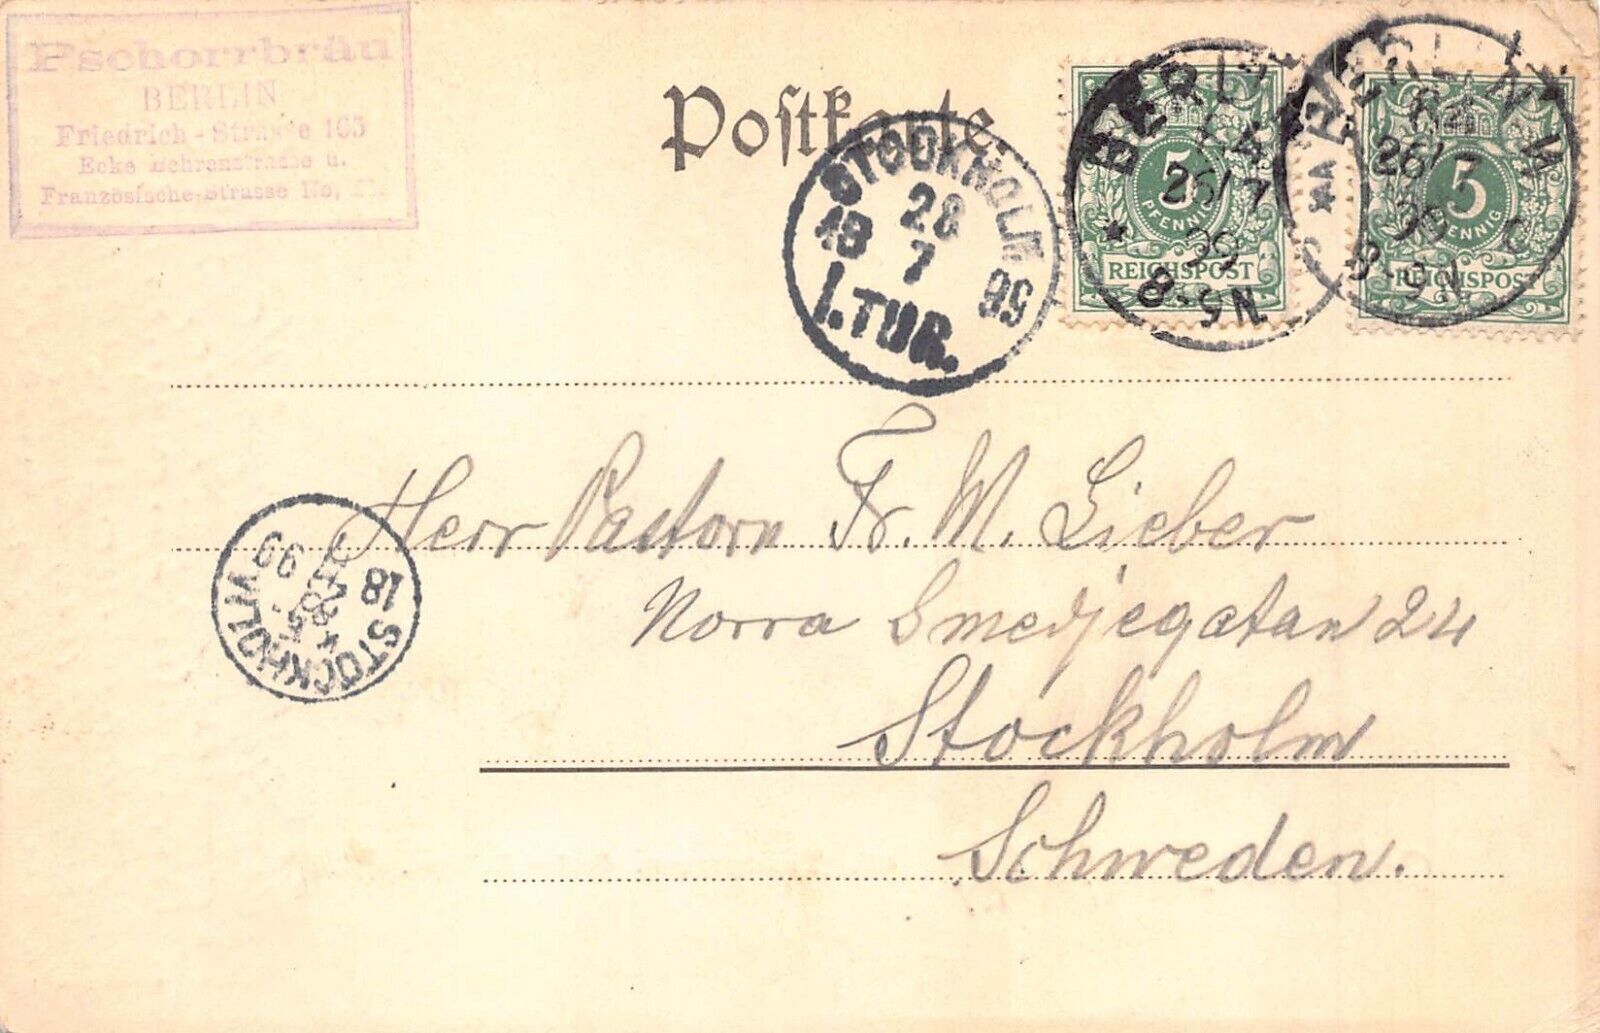 Pschorrbräu
BERLIN
Friedrich-Strasse 165
Ecke Behrenstrasse u.
Französische-Strasse No,
Postkarte.
STOCKHOLM
28
7
99
1.TUR.
BERLIN
26/7
99
8-9N
5
PFENNIG
REICHSPOST
BERLIN W
64
26/7
99
8-9N
5
PFENNIG
REICHSPOST
Herr Pastorn Fr. M. Lieber
Norra Smedjegatan 24
Stockholm
Schweden.
STOCKHOLM
18
28
7
99